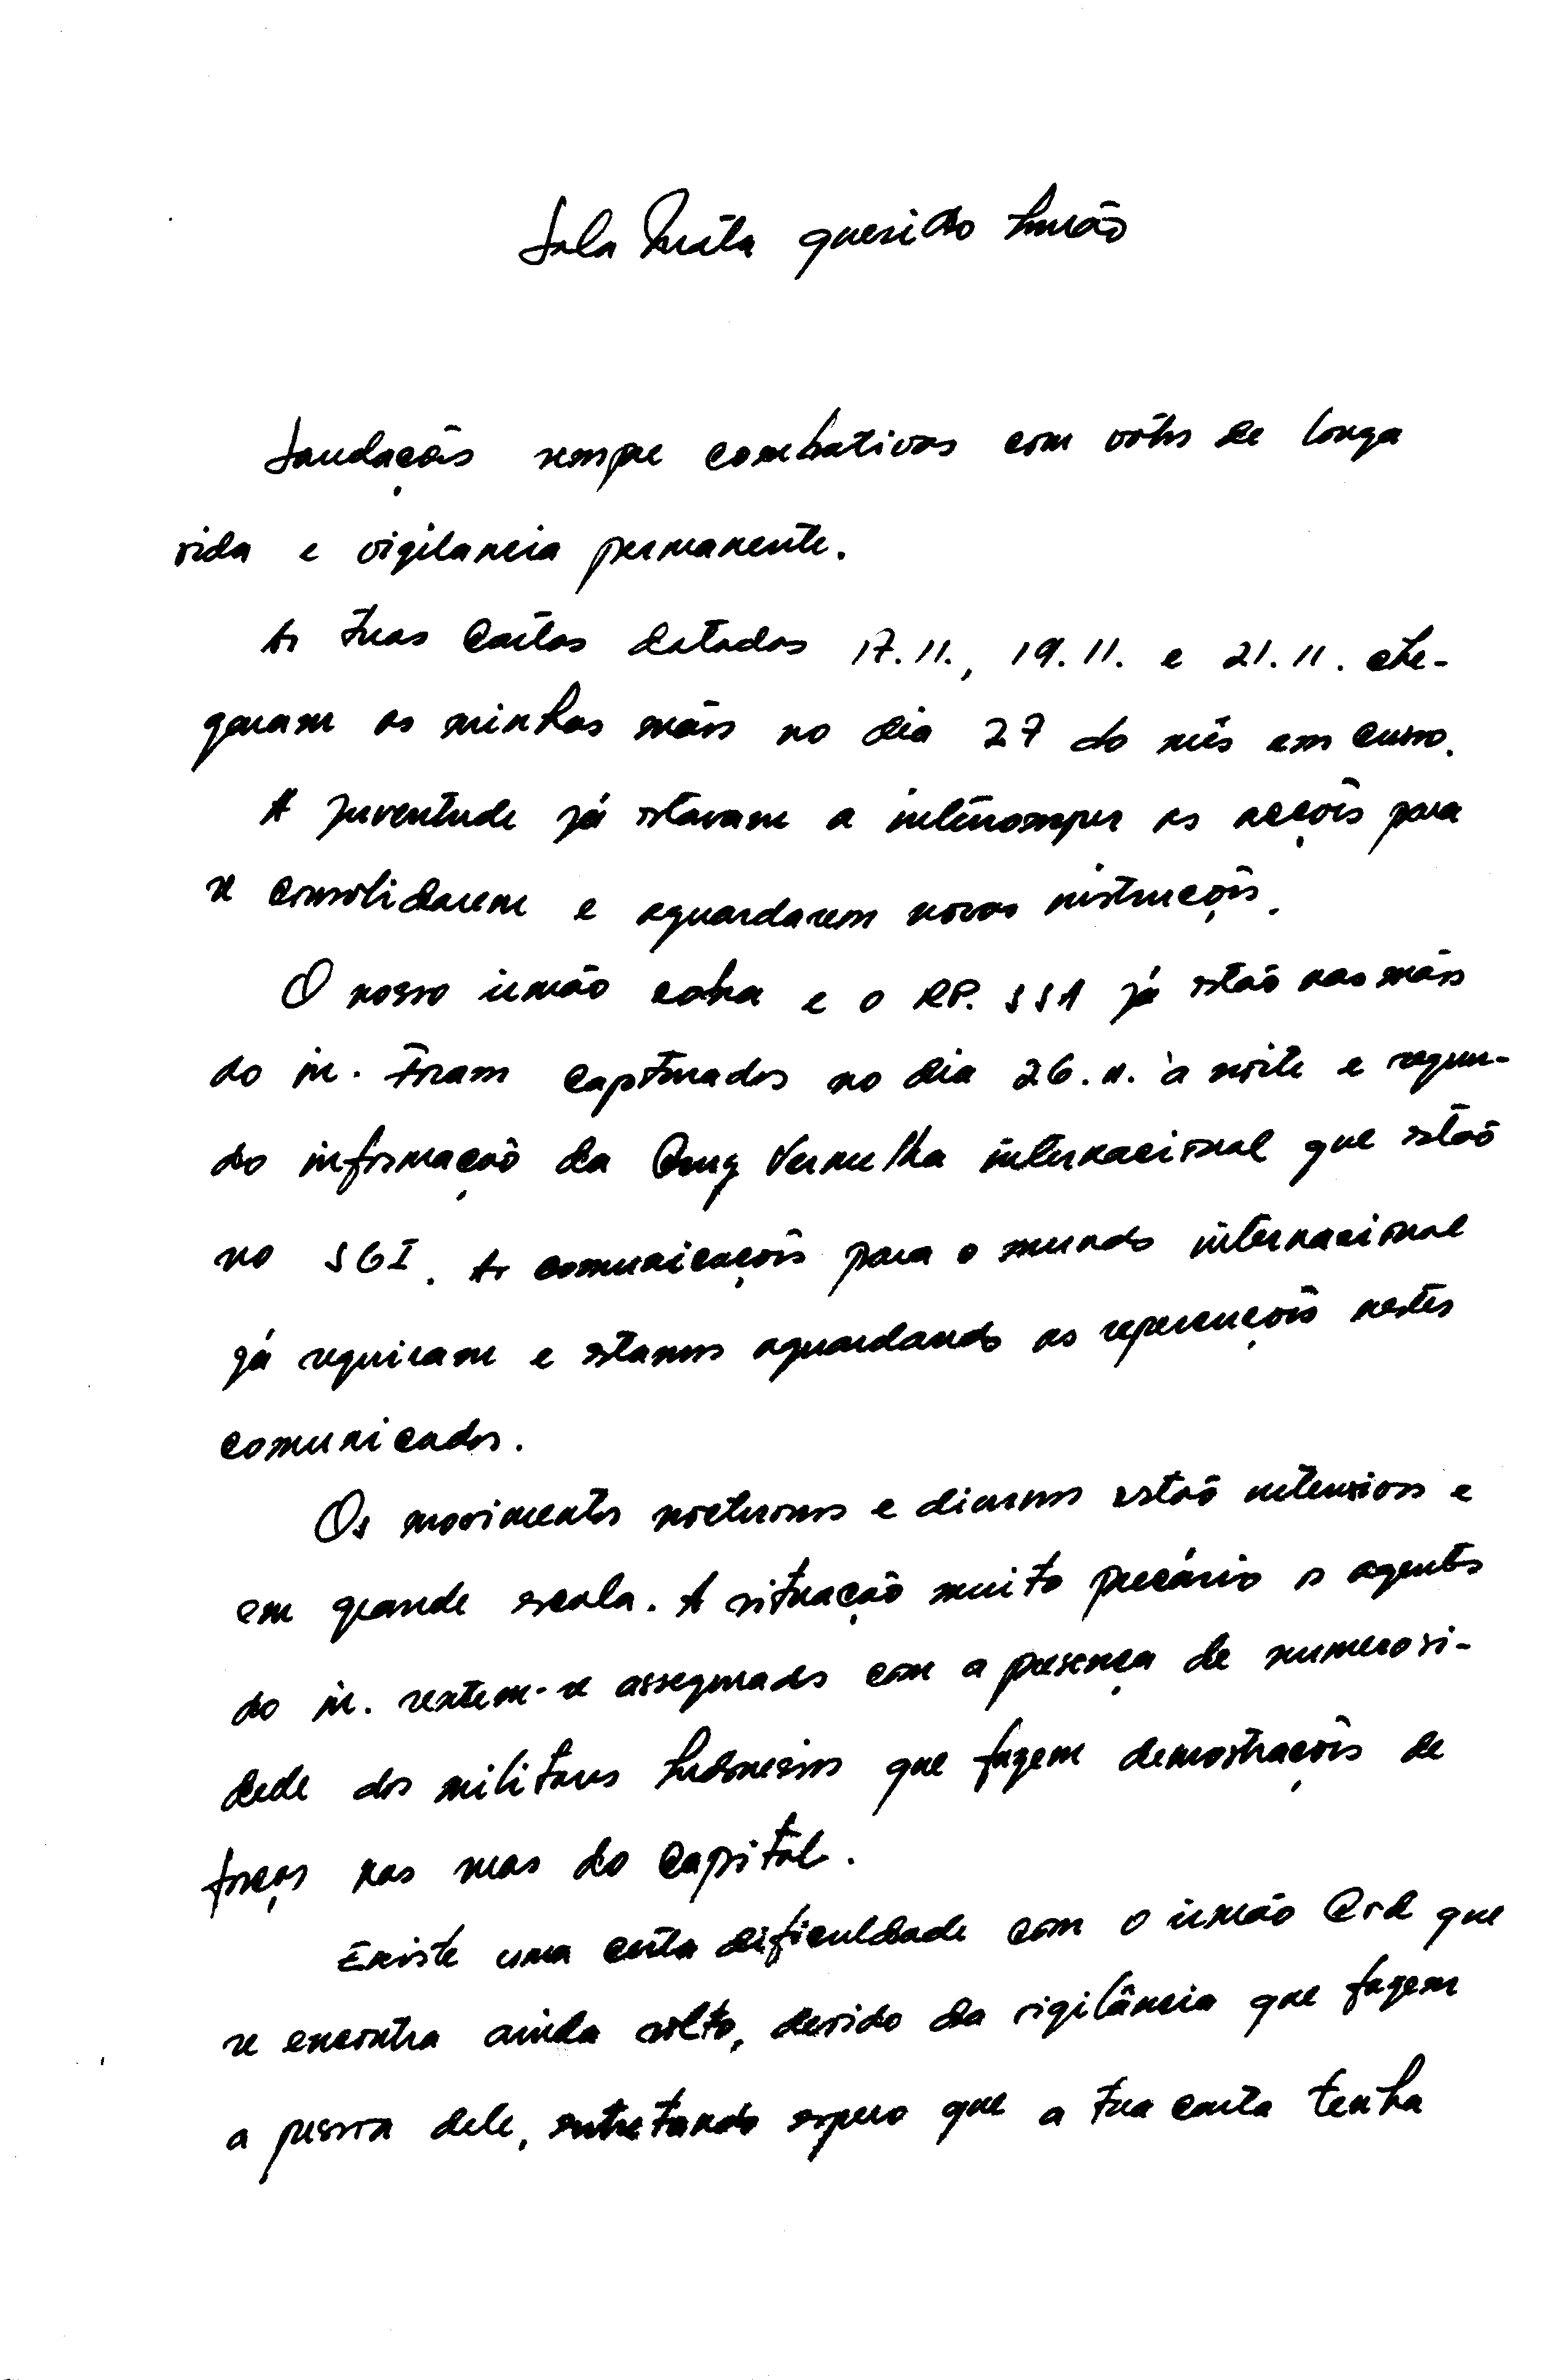 Sala Mata querido Irmão
Saudações sempre combativas com votos de longa
vida e vigilancia permanente.
As tuas cartas datadas 17.11., 19.11. e 21.11. che-
garam as minhas mãos no dia 27 do mês em curso.
A juventude já estavam a interromper as acções para
se consolidarem e aguardarem novas instruções.
O nosso irmão e o RP. SSA já estão nas mãos
do in. Foram capturados no dia 26.11. à noite e segun-
do informação da Cruz Vermelha internacional que estão
no SGI. As comunicações para o mundo internacional
já seguiram e estamos aguardando as reperceções nestes
comunicados.
Os movimentos nocturnos e diurnos estão intensivos e
em grande escala. A situação muito precário os agentes
do in. sentem-se assegurados com a presença de numerosi-
dade dos militares Indonesios que fazem demostrações de
forças nas ruas do capital.
Existe uma certa dificuldade com o irmão Crd que
se encontra ainda solto, devido da vigilância que fazem
a pessoa dele, entretando espero que a tua carta tenha